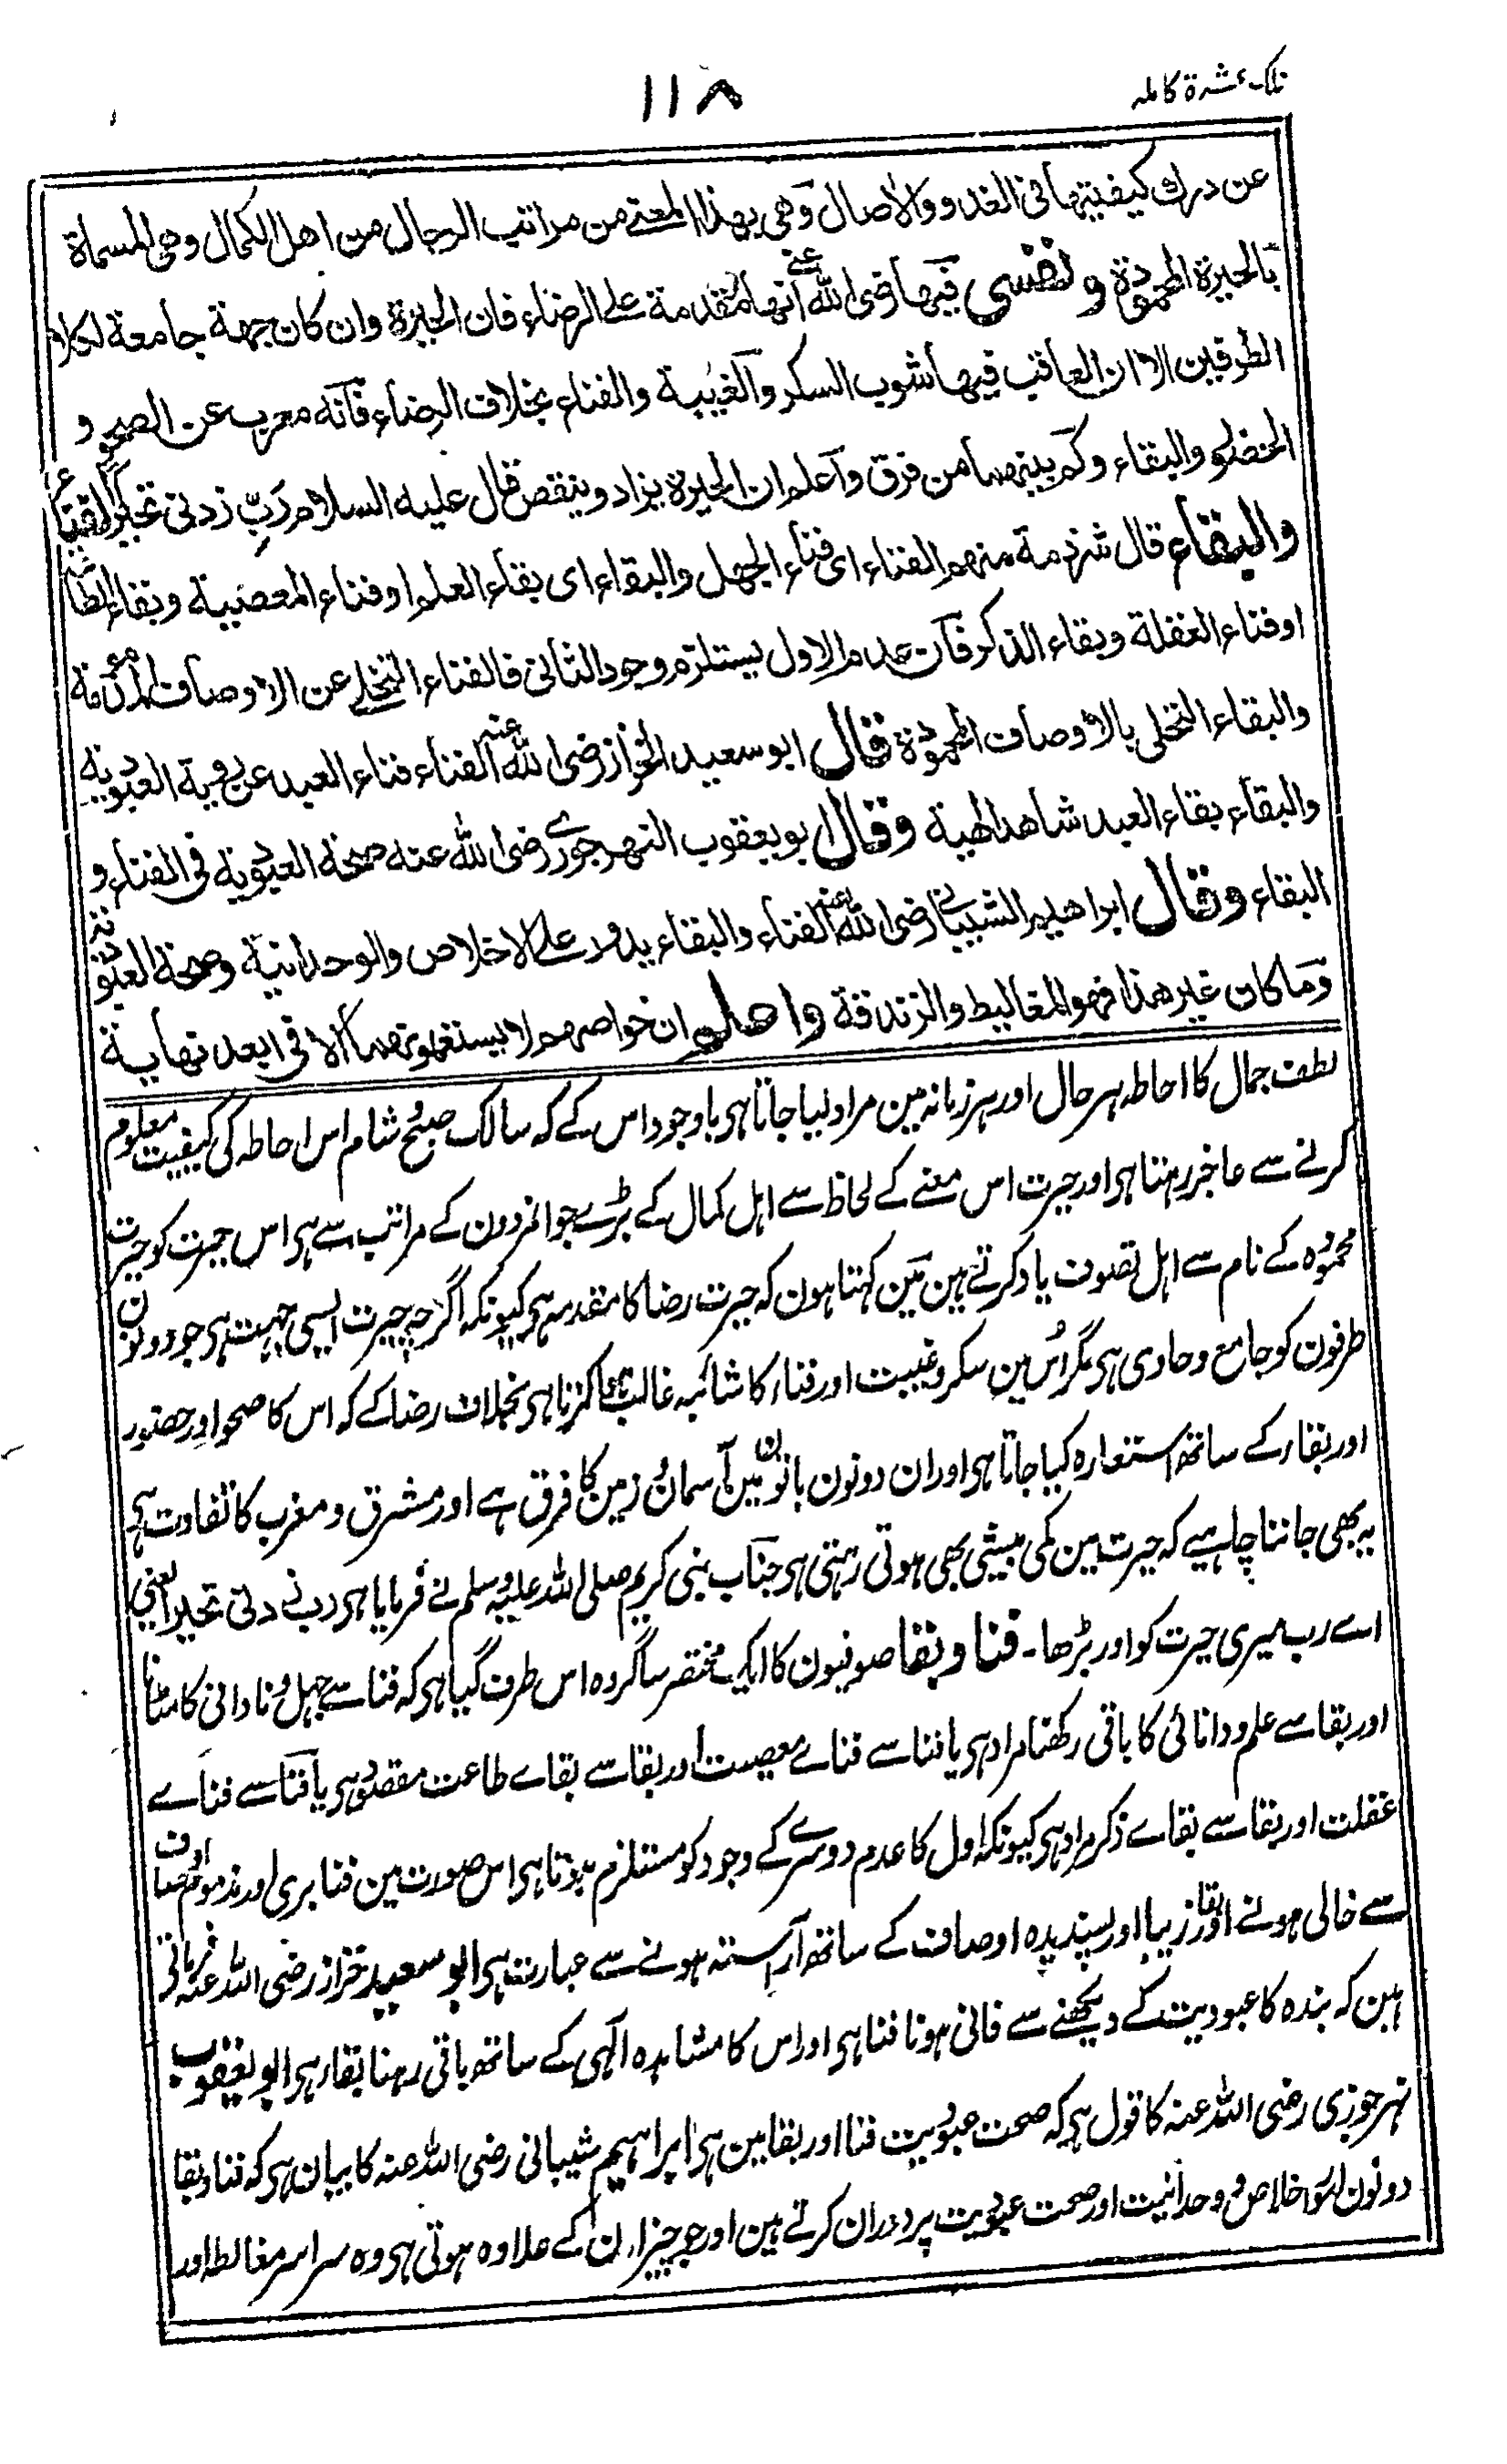 تلک عشرۃ کاملہ
١١٨
عن درك كيفيتها فى الغدو والاٰصال وهى بهذا المعنے من مراتب الرجال من اهل الكمال وهى المسماة
بالحيرة المحمودة ونفسى فيها رضى الله عنے انها مقدمة على الرضاء فان الحيرة وان كان جهة جامعة لكلا
الطرفين الا ان الغالب فيها شوب السكر والغيبة والفناء بخلاف الرضاء فانه معرب عن الصحو و
الحضور والبقاء وكم بينهما من فرق واعلم ان الحيرة يزاد وينقص قال عليه السلام رَبِّ زدنى تحيرا الفناء
والبقاء قال شرذمة منهم الفناء اى فناء الجهل والبقاء اى بقاء العلم او فناء المعصية وبقاء الطاعة
او فناء الغفلة وبقاء الذكر فان عدم الاول يستلزم وجود الثانى فالفناء التخلے عن الاوصاف المذمومة
والبقاء التحلى بالاوصاف المحمودة قال ابو سعيد الخراز رضى الله عنه الفناء فناء العبد عن روية العبودية
والبقاء بقاء العبد شاهد الهية وقال ابو يعقوب النهرجورى رضى الله عنه صحة العبودية فى الفناء و
البقاء وقال ابراهيم الشيبانى رضى الله عنه الفناء والبقاء يدور على الاخلاص والوحدانية وصحة العبودية
وما كان غير هذا فهو المغاليط والزندقة واعلم ان خواصهم لا يستعملونهما الا فى ابعد نهاية
لطف جمال کا احاطہ ہر حال اور ہر زمانہ مین مراد لیا جاتا ہی باوجود اس کے کہ سالک صبح شام اس احاطہ کی کیفیت معلوم
کرنے سے عاجز رہتا ہی اور حیرت اس معنے کے لحاظ سے اہل کمال کے بڑے جوانمردون کے مراتب سے ہی اس حیرت کو حیرت
محمودہ کے نام سے اہل تصوف یاد کرتے ہین مین کہتا ہون کہ حیرت رضا کا مقدمہ ہی کیونکہ اگرچہ حیرت ایسی جہت ہی جو دونون
طرفون کو جامع و حاوی ہی مگر اُس مین سکر و غیبت اور فناء کا شائبہ غالب ہوا کرتا ہی بخلاف رضا کے کہ اس کا صحو اور حضور
اور بقاء کے ساتھ استعارہ کیا جاتا ہی اور ان دونون باتون مین آسمان زمین کا فرق ہے اور مشرق و مغرب کا تفاوت ہی
یہ بھی جاننا چاہیے کہ حیرت مین کمی بیشی بھی ہوتی رہتی ہی جناب نبی کریم صلی اللہ علیہ وسلم نے فرمایا ہی رب زدنی تحیرا یعنی
اے رب میری حیرت کو اور بڑھا۔ فنا و بقا صوفیون کا ایک مختصر سا گروہ اس طرف گیا ہی کہ فنا سے جہل و نادانی کا مٹانا
اور بقا سے علم و دانائی کا باقی رکھنا مراد ہی یا فنا سے فناے معصیت اور بقا سے بقاے طاعت مقصود ہی یا فنا سے فناے
غفلت اور بقا سے بقاے ذکر مراد ہی کیونکہ اول کا عدم دوسرے کے وجود کو مستلزم ہوتا ہی اس صورت مین فنا بری اور مذموم اوصاف
سے خالی ہونے اور بقا زیبا اور پسندیدہ اوصاف کے ساتھ آراستہ ہونے سے عبارت ہی ابو سعید خراز رضی اللہ عنہ فرماتے
ہین کہ بندہ کا عبودیت کے دیکھنے سے فانی ہونا فنا ہی اور اس کا مشاہدہ الٰہی کے ساتھ باقی رہنا بقا ہی ابو یعقوب
نہرجوری رضی اللہ عنہ کا قول ہی کہ صحت عبودیت فنا اور بقا مین ہی ابراہیم شیبانی رضی اللہ عنہ کا بیان ہی کہ فنا و بقا
دونون اخلاص و وحدانیت اور صحت عبودیت پر دوران کرتے ہین اور جو چیز ان کے علاوہ ہوتی ہی وہ سراسر مغالطہ اور